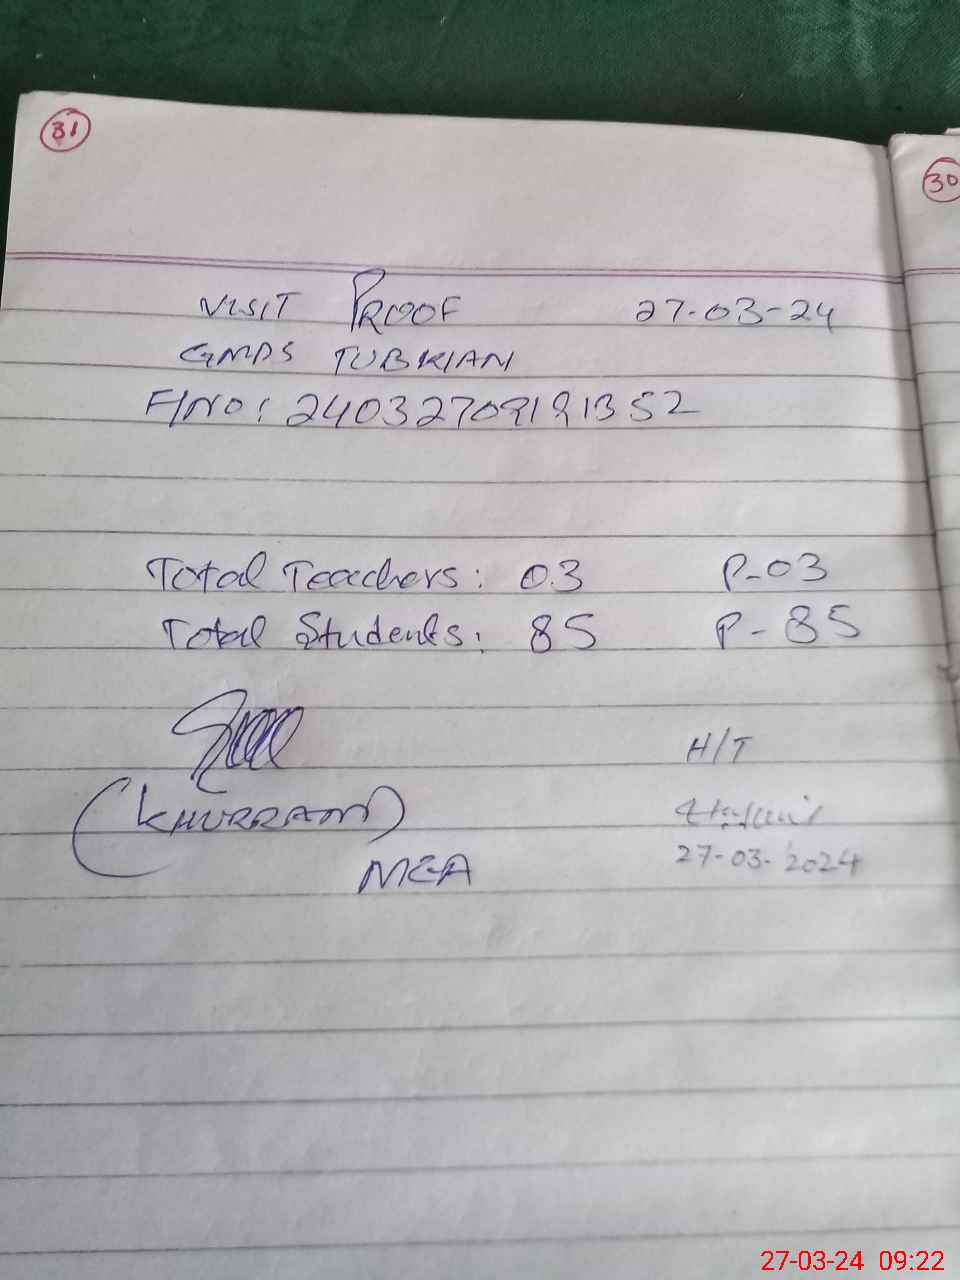 31
30
VISIT PROOF 27-03-24
GMPS TUBKIAN
F/NO: 24032709191352
Total Teachers: 03 P-03
Total Students: 85 P-85
H/T
(KHURRAM)
27-03-2024
MEA
27-03-24 09:22